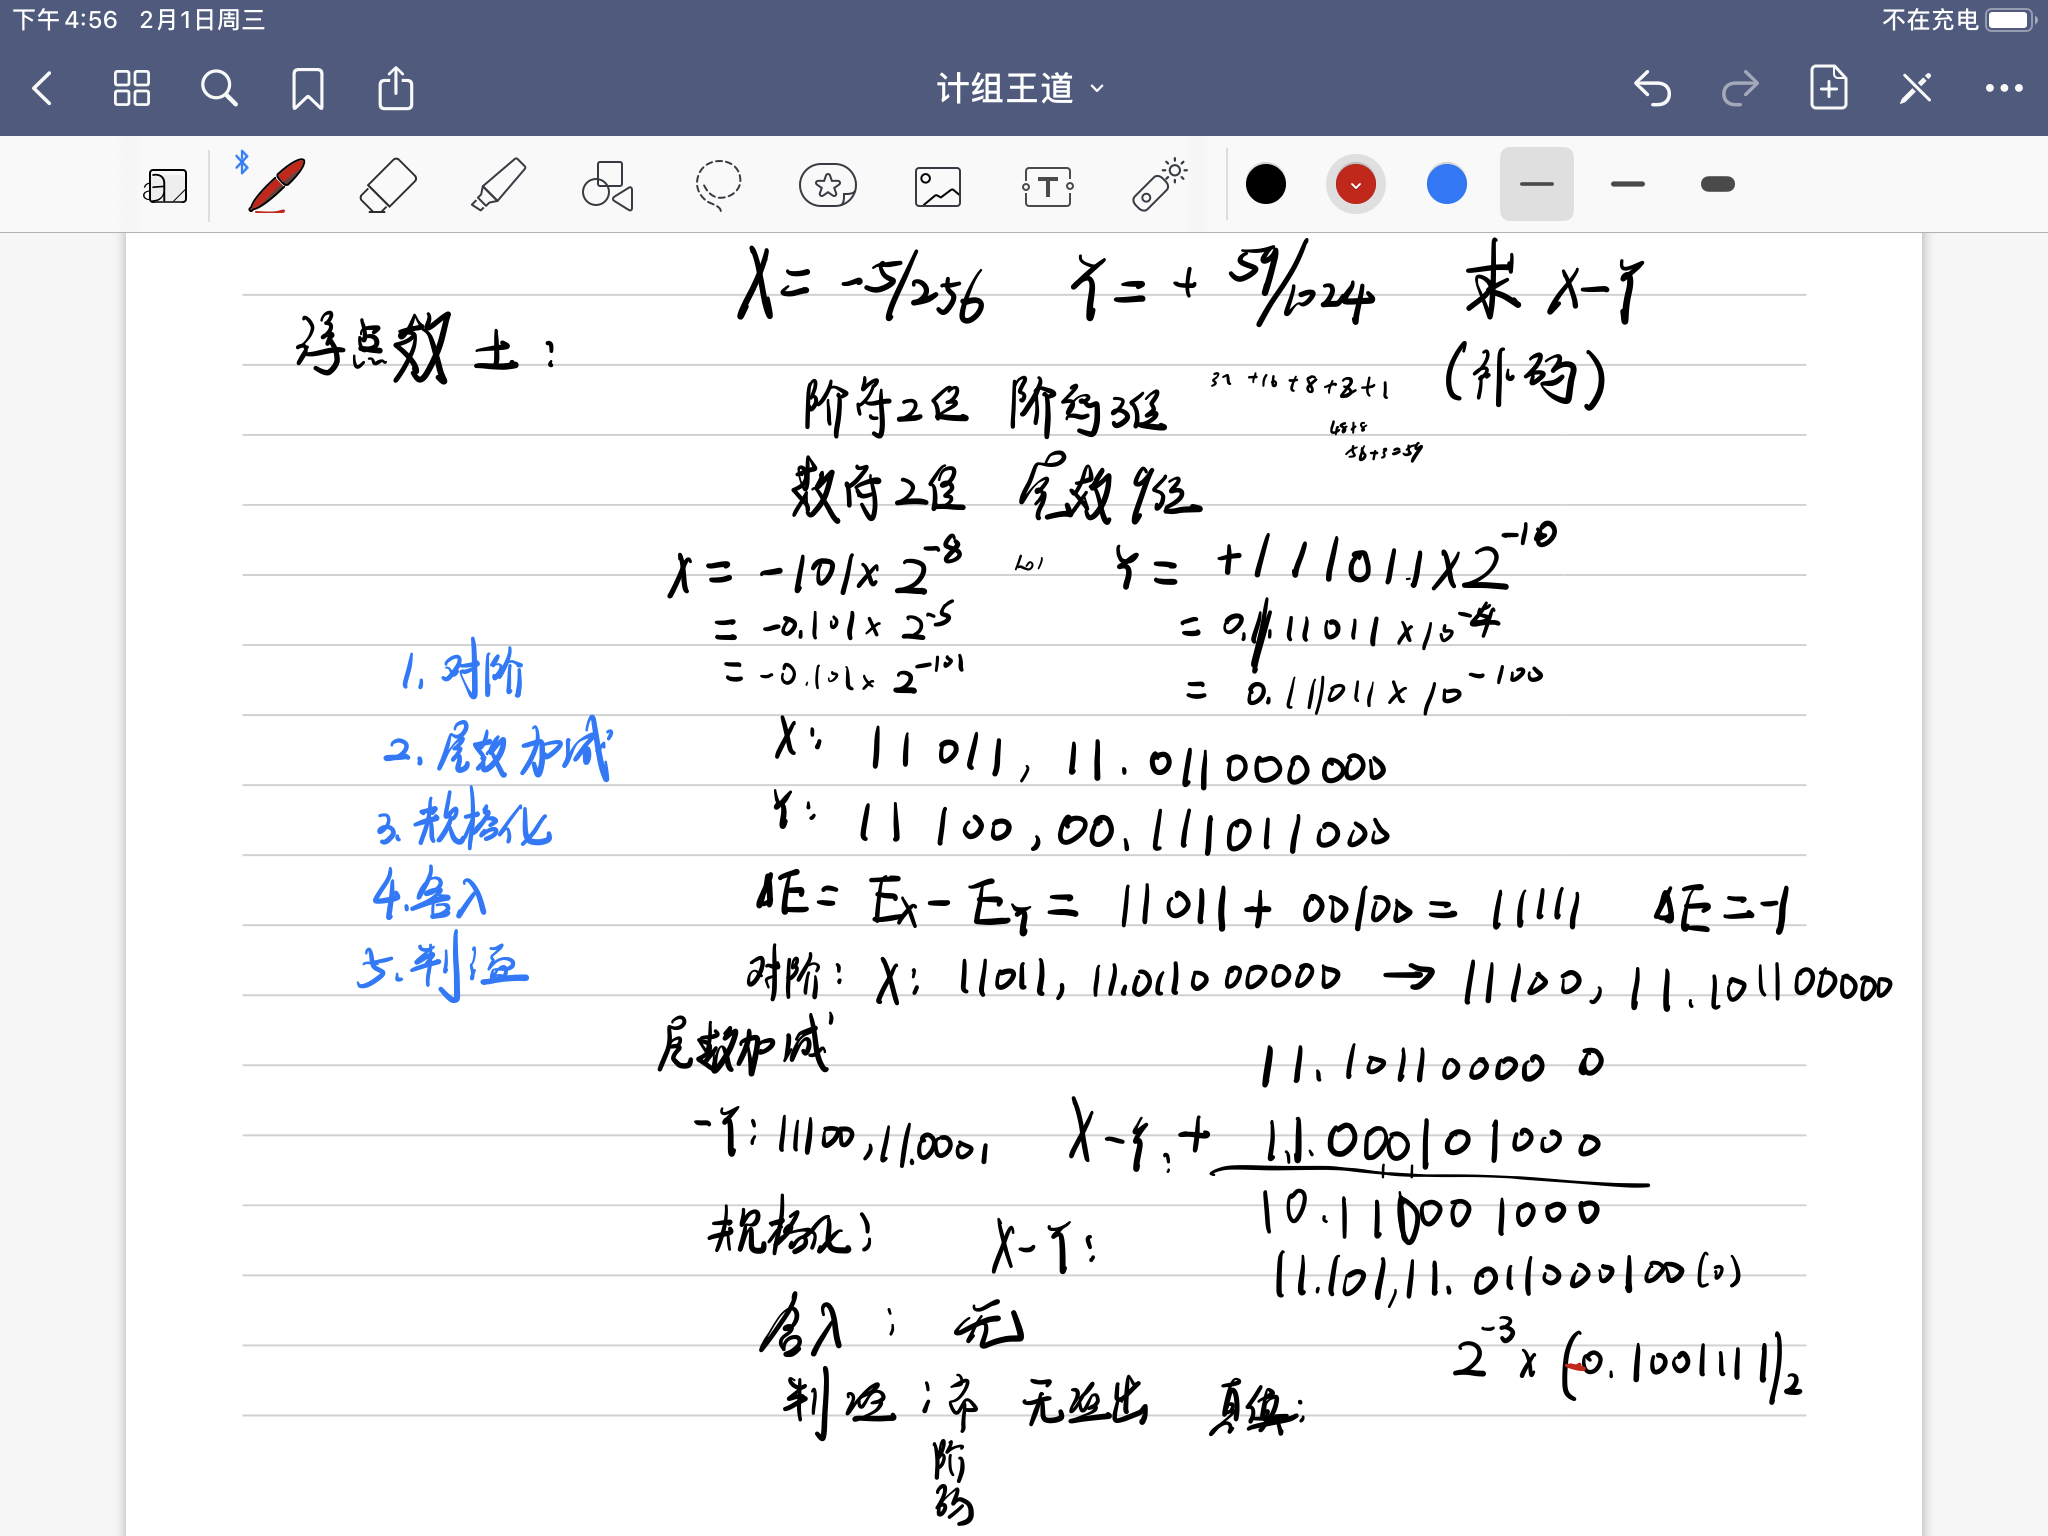 下午4:56 2月1日周三
不在充电
计组王道
X = -5/256 Y = + 59/1024 求 X-Y
浮点数 士:
(补码)
32 +16 +8 +2+1
48+8
56+3=59
阶符2位 阶码3位
数符2位 尾数9位
X = -101× 2^-8 Y = +111011×2^-10
= -0.101× 2^-5 = 0.111011×10^-4
= -0.101× 2^-101 = 0.111011×10^-100
1. 对阶
2. 尾数加减
3. 规格化
4. 舍入
5. 判溢
X: 11 011, 11.011000000
Y: 11 100, 00.111011000
ΔE = Ex - EY = 11011 + 00100 = 11111 ΔE=-1
对阶: X: 11011, 11.011000000 → 11100, 11.101100000
尾数加减
11.101100000
-Y: 11100, 11.0001 X-Y: + 11.000101000
10.110001000
规格化: X-Y: 11.101, 11.011000100(0)
舍入: 无
2^-3 × (-0.1001111)2
判溢: 无溢出 真值:
阶
码